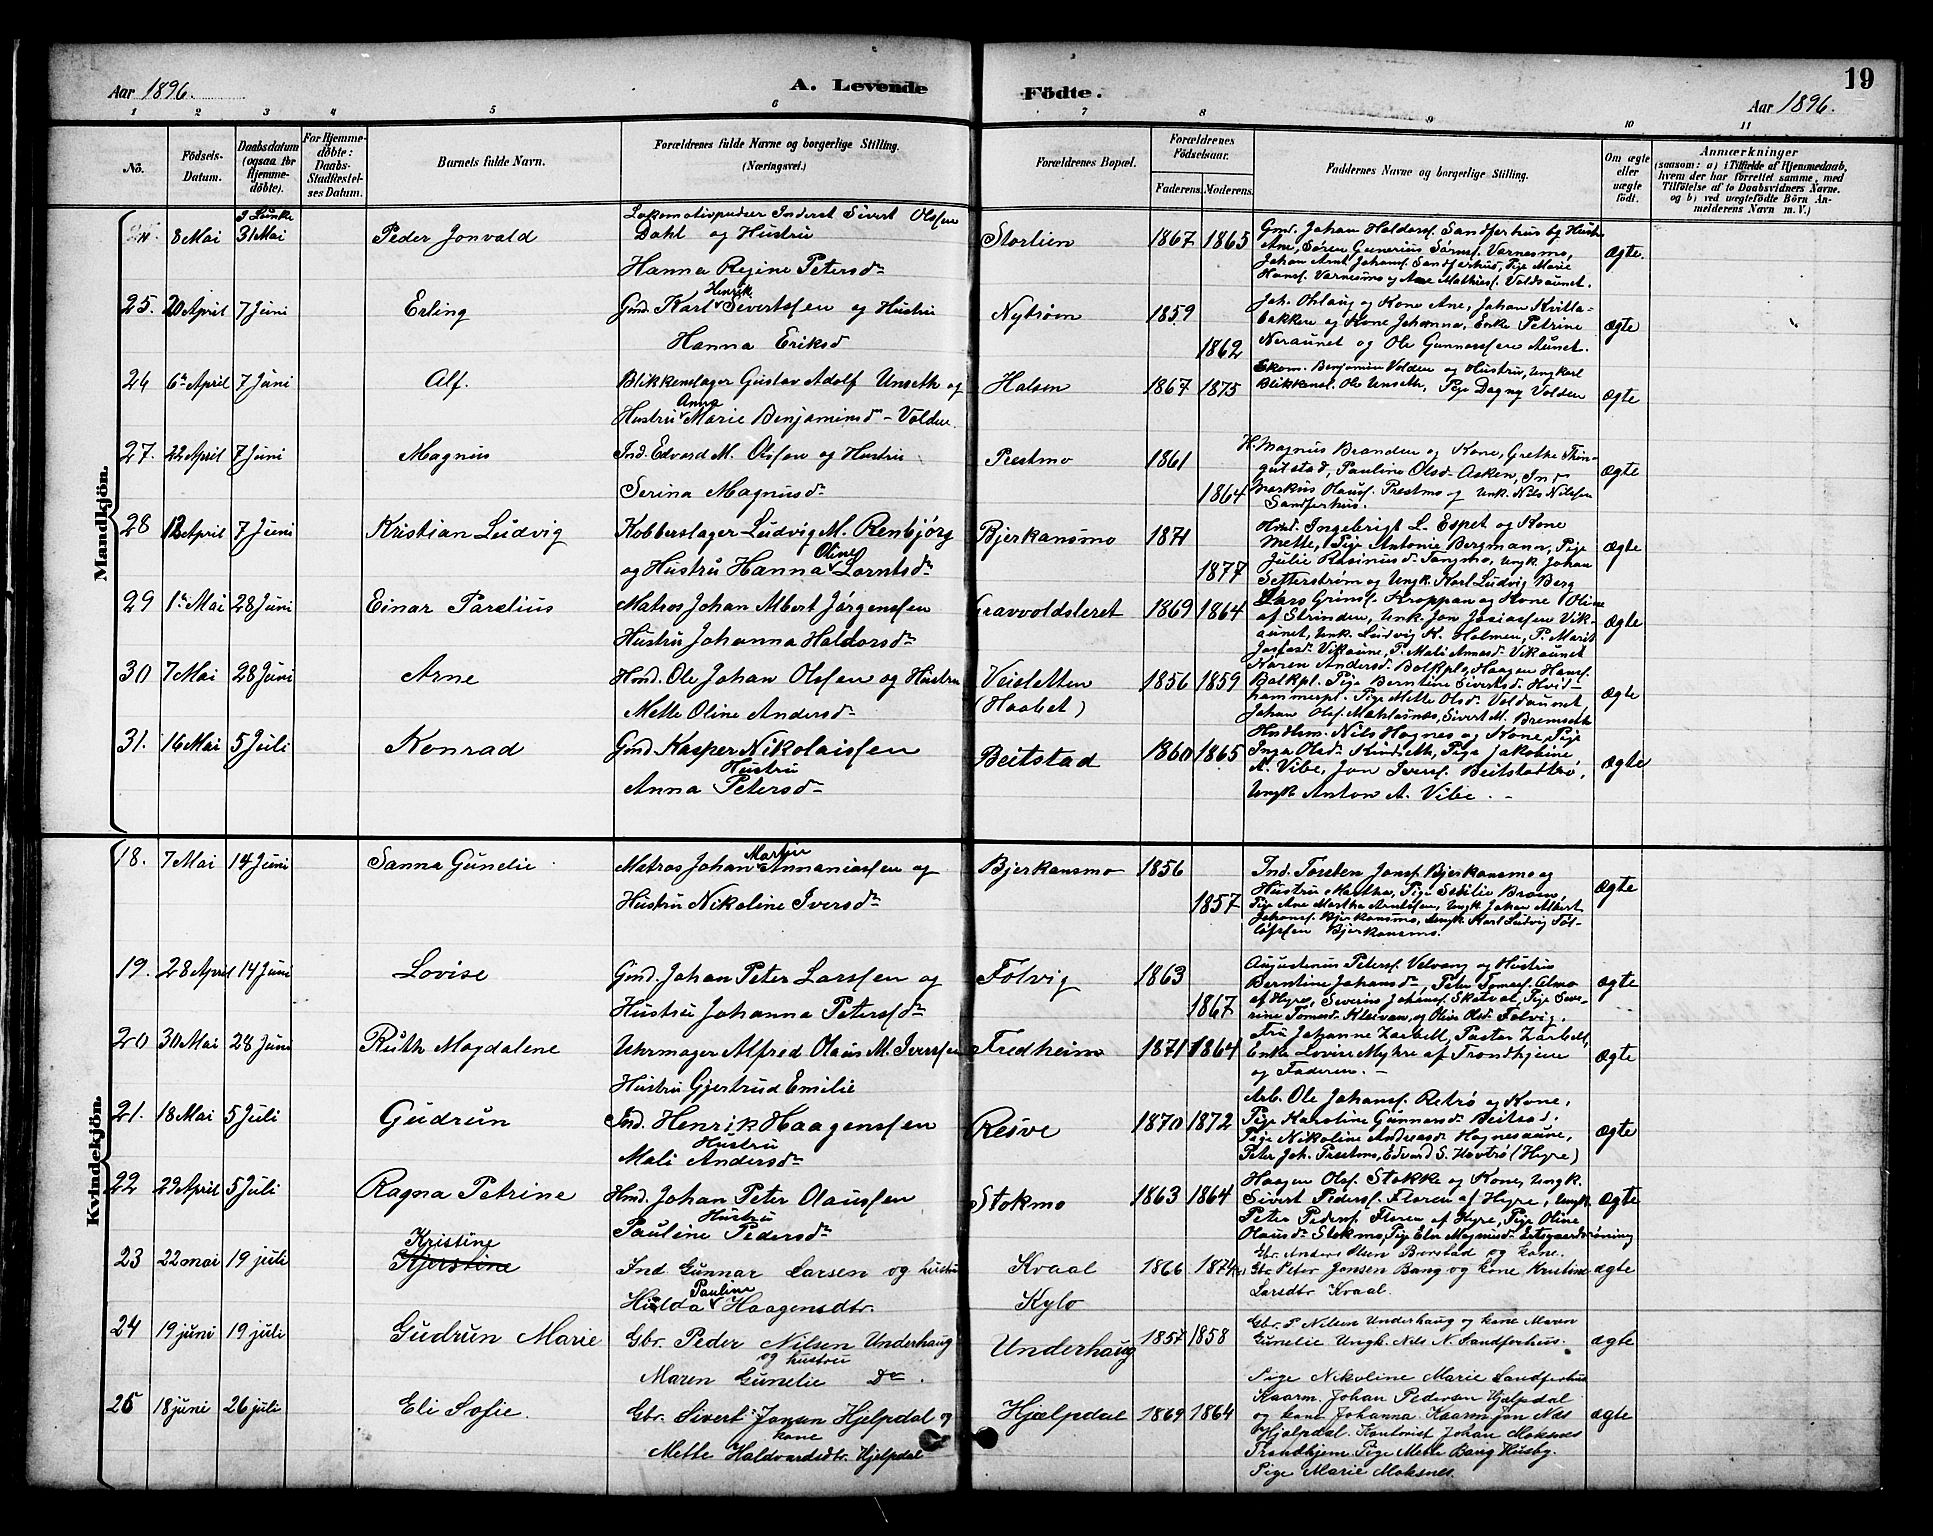 19
Aar 1896.
A. Levende Födte.
Aar 1896.
1 2 3 4 5 6 7 8 9 10 11
No.
Födsels-Datum.
Daabsdatum (ogsaa for Hjemme-döbte).
For Hjemme-döbte: Daabs-Stadfæstel-ses Datum.
Barnets fulde Navn.
Forældrenes fulde Navne og borgerlige Stilling. (Næringsvei.)
Forældrenes Bopæl.
Forældrenes Födselsaar.
Faderens. Moderens.
Faddernes Navne og borgerlige Stilling.
Om ægte eller uægte födt.
Anmærkninger
(saasom: a) i Tilfælde af Hjemmedaab, hvem der har forrettet samme, med Tilföielse af to Daabsvidners Navne. og b) ved uægtefödte Börn An-melderens Navn m. V.)
Mandkjön.
8 Mai 31 Mai Peder Jonvald
Lokomotivpudser Inderst Sivert Olssen
Dahl og Hustru
Hanna Regine Petersd.
Storlien 1867 1865
Gmd. Johan Haldorss. Sandferhus og Hustru
Ane, Søren Gunerius Sørns. Varnesmo,
Johan Arnt Johans. Sandferhus, Pige Marie
Hansd. Varnesmo og Ane Mathiesd. Voldsaunet.
Ægte.
25. 20 April 7 Juni Erling
Gmd. Karl Henrik Sivertssen og Hustru
Hanna Eriksd
Nytrøen 1859 1862
Joh. Ohlaug og Kone Ane, Johan Kvitla-
bakken og Kone Johanna, Enke Petrine
Neraunet og Ole Gunnerssen Aunet.
Ægte
26 6te April 7 Juni Alf.
Blikkenslager Gustav Adolf Unseth og
Hustru Anna Marie Benjaminsd. Volden.
Halsen 1867 1875
Skom. Benjamin Volden og Hustru, Ungkarl
Blikkensl. Ole Unseth, Pige Dagny Volden
Ægte
27. 22 April 7 Juni Magnus
Ind. Edvard M. Olssen og Hustru
Serina Magnusd.
Prestmo 1861 1864
H. Magnus Branden og Kone, Grethe Thin-
gutstad, Pauline Olsd. Asken, Ind
Markus Olauss. Prestmo og Unk. Nils Nilssen
Sandferhus.
Ægte
28 12 April 7 Juni Kristian Ludvig
Kobberslager Ludvig M. Renbjørg
og Hustru Hanna Oline Lorntsd.
Bjerkansmo 1871 1877
Hmd. Ingebrigt L. Espet og Kone
Mette, Pige Antonie Bergmann, Pige
Julie Rasinusd. Tangmo, Ungk. Johan
Setterstrøm og Ungk. Karl Ludvig Berg
Ægte
29 1ste Mai 28 Juni Einar Parelius
Matros Johan Albert Jørgenssen
Hustru Johanna Haldorsd.
Gravvoldsleret 1869 1864
Lars Grinss. Kroppan og Kone Oline
af Strinden, Unk. Jon Josiassen Vik-
aunet, Unk. Ludvig H. Holmen, P. Marit
Josiasd. Vikaune, P. Mali Annasd. Vikaunet
Ægte
30 7 Mai 28 Juni Arne
Hmd. Ole Johan Olssen og Hustru
Mette Oline Andersd.
Veisletten (Haabet) 1856 1859
Karen Andersd. Balkpl., Haagen Hanss.
Balkpl. Pige Berntine Sivertsd. Hvid-
hammerpl. Pige Mette Olsd. Voldaunet,
Johan Olss. Mæhlasnæs, Sivert M. Bremseth
Ægte
31. 16 Mai 5 Juli Konrad
Gmd. Kasper Nikolaissen
Hustru
Anna Petersd.
Beitstad 1860 1865
Nils Hognes og Kone, Pige
Inga Olsd. Mindseth, Pige Jakobine
A. Vibe, Jon Iverss. Beitstadtrø,
Ungk Anton A. Vibe.
Ægte
Kvindekjön.
18. 7 Mai 14 Juni Sanna Gunelie
Matros Johan Martin Annaniassen og
Hustru Nikoline Iversd.
Bjerkansmo 1856 1857
Ind. Torsten Jonss. Bjerkansmo og
Hustru Martha, Pige Sesilie Broen,
Pige Ane Martha Arntssen, Ungk. Johan Albert
Johanss. Bjerkansmo, Ungk. Karl Ludvig Tol-
løfssen Bjerkansmo.
Ægte
19. 28 April 14 Juni Lovise
Gmd. Johan Peter Larssen og
Hustru Johanna Peterssd.
Folvig 1863 1867
Augustinus Peterss. Velvang og Hustru
Berntine Johansd., Peter Tomass. Almo
af Hegre, Severin Johanss. Skatval, Pige Seve-
rine Tomasd. Kleivan, og Olive Olsd. Folvig.
Ægte
20 30 Mai 28 Juni Ruth Magdalene
Uhrmager Alfred Olaus M. Iverssen
Hustru Gjertrud Emilie
Fredheim 1871 1864
Fru Johanne Zarbell, Pastor Zarbell,
Enke Lovise Myhre af Trondhjem
og Faderen.
Ægte
21. 18 Mai 5 Juli Gudrun
Ind. Henrik Haagenssen
Hustru
Mali Andersd.
Resve 1870 1872
Arb. Ole Johanss. Retrø og Kone,
Pige Karoline Gunnarsd. Beitsad.
Pige Nikoline Andreasd. Hognesaune,
Peter Joh. Prestmo, Edvard S. Hovtrø (Hegre)
Ægte
22 29 April 5 Juli Ragna Petrine
Hmd. Johan Peter Olaussen
Hustru
Pauline Pedersd.
Stokmo 1863 1864
Haagen Olss. Stokke og Kone, Ungk.
Sivert Pederss. Floren af Hegre, Ungk
Peter Pederss. Floren af Hegre, Pige Oline
Olausd. Stokmo, Pige Elen Magnusd.
Ægte
23 22 mai 19 juli Kristine
Kjerstine
Ind Gunnar Larsen og hustru
Hilda Pauline Haagensdtr.
Kvaal
Kylo
1866 1874
Gbr. Anders Olsen Borstad og kone.
Gbr Peter Jensen Bang og kone Kristine
Larsdtr. Kvaal.
ægte
24 19 juni 19 juli Gudrun Marie
Gbr. Peder Nilsen Underhaug
og hustru
Maren Gunelie Do.
Underhaug 1857 1858
Gbr. P Nilsen Underhaug og kone Maren
Gunelie Ungk. Nils N. Sandferhus.
Pige Nikoline Marie Sandferhus
ægte
25 18 juni 26 juli Eli Sofie.
Gbr. Sivert Jonsen Hjelpdal og
kone
Mette Haldvardsdtr. Hjelpdal
Hjælpdal 1869 1864
Kaarm. Johan Pedersen Hjelpdal
og kone Johanna. Kaarm Jon Næs
Hjelpdal. Kontorist Johan Moksnes
Trondhjem. Pige Mette Bang Husby.
Pige Marie Moksnes.
ægte